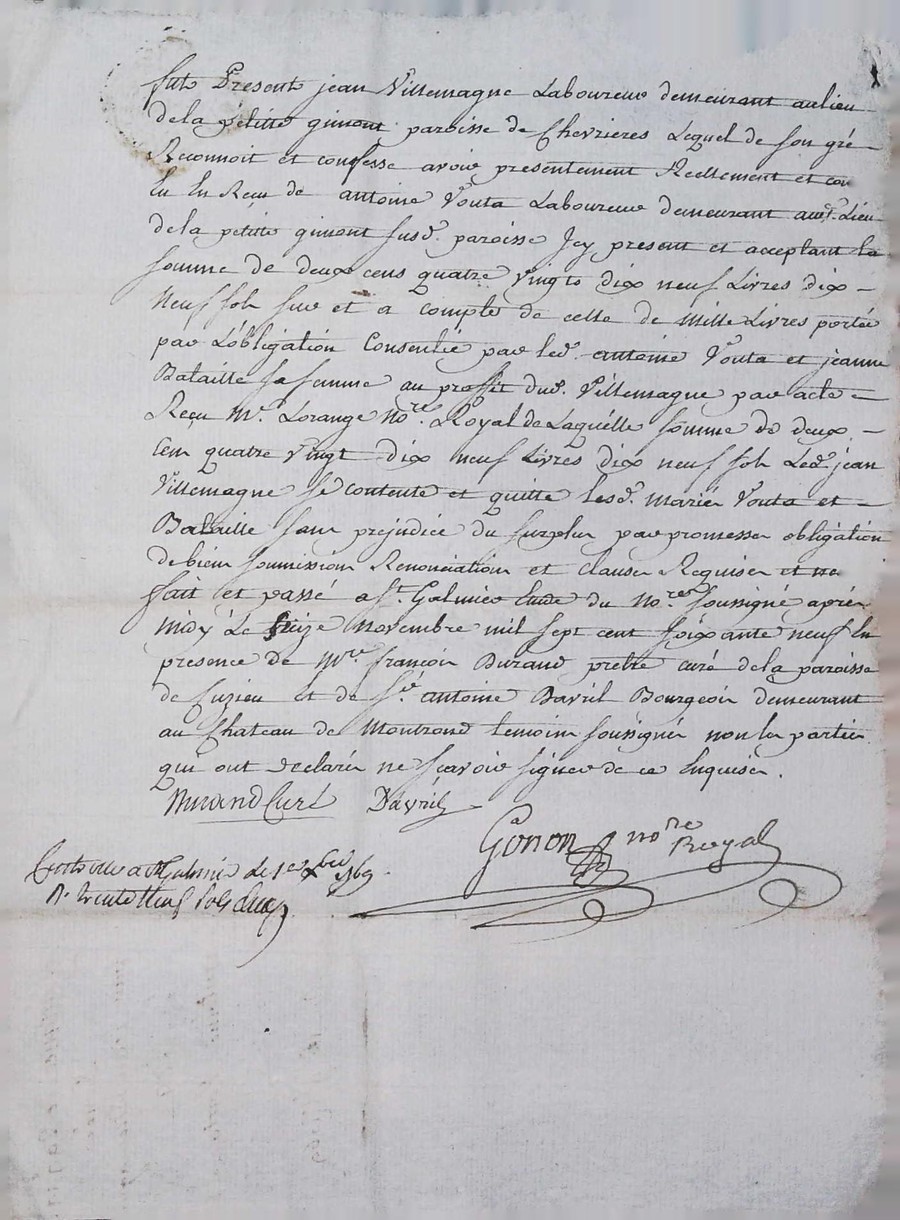 fut Present jean Villemagne Laboureur demeurant au lieu
de la petitte gimont paroisse de Chevrieres Lequel de son gré
Reconnoit et confesse avoir presentement Reellement et con
eu En Reçu de antoine Vouta Laboureur demeurant aud. Lieu
de la petitte gimont susd. paroisse Icy present et acceptant la
somme de deux cens quatre vingts dix neuf Livres dix
Neuf sols sur et a compte de celle de Mille Livres portée
par L'obligation Consentie par led. antoine Vouta et jeanne
Bataille sa femme au proffit dud. Villemagne par acte
Reçu Me. Lorange Nore. Royal de Laquelle somme de deux
Cens quatre Vingt dix neuf Livres dix neuf sols Led. jean
Villemagne se contente et quitte lesd. mariés Vouta et
Bataille sans prejudice du surplus par promesses obligation
de biens soumissions Renonciations et clauses Requises
fait et passé a St. Galmier Etude du Nore. soussigné après
midy Le seize Novembre mil sept cent soixante neuf En
presence de Mre. françois Durand prestre curé de la paroisse
de Cuzieu et de Sr. antoine Davril Bourgeois demeurant
au Chateau de Montrond temoins soussignés non les parties
qui ont declarés ne scavoir signer de ce Enquises.
Durand Curé Davril
Gonon nore Royal
Controllé a St Galmier le 1er Xbre 1769
R. trente neuf sols